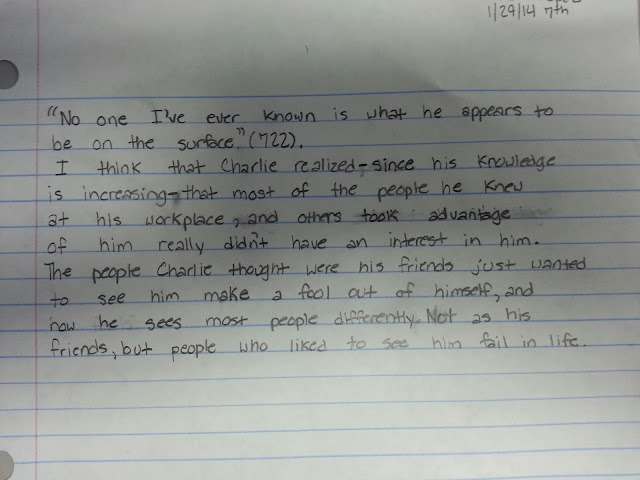 1/29/14 7th
"No one I've ever known is what he appears to
be on the surface" (722).
I think that Charlie realized-since his knowledge
is increasing-that most of the people he knew
at his workplace, and others took advantage
of him really didn't have an interest in him.
The people Charlie thought were his friends just wanted
to see him make a fool out of himself, and
now he sees most people differently. Not as his
friends, but people who liked to see him fail in life.